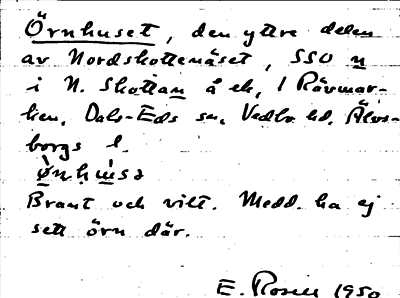 Örnhuset, den yttre delen
av Nordskottenäset, SSO n
i N. Skottan å ek, 1 Rävmar-
ken, Dals-Eds sn, Vedbo hd, Älvs-
borgs l.
Brant och vilt. Medd. ha ej
sett örn där.
E. Rosell 1950